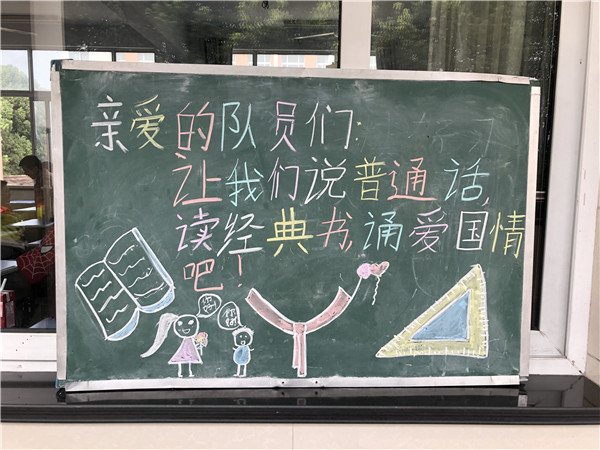 亲爱的队员们:
让我们说普通话,
读经典书,诵爱国情
吧!
你好!
你好!